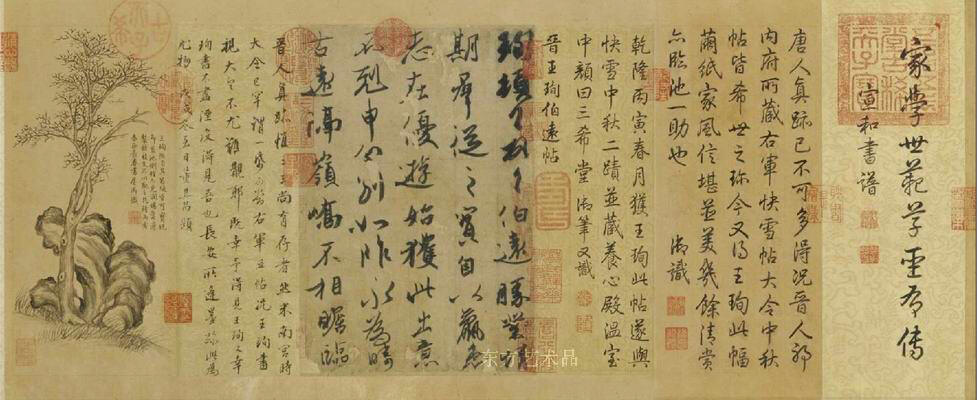 家學世範草聖有傳
宣和書譜
唐人真跡已不可多得況晉人耶
內府所藏右軍快雪帖大令中秋
帖皆希世之珍今又得王珣此幅
繭紙家風信堪並美幾餘清賞
亦臨池一助也 御識
乾隆丙寅春月獲王珣此帖遂與
快雪中秋二蹟並藏養心殿溫室
中顏曰三希堂御筆又識
晉王珣伯遠帖
珣頓首頓首伯遠勝業情
期群從之寶自以羸患
志在優遊始獲此出意
不剋申分別如昨永為疇
古遠隔嶺嶠不相瞻臨
晉人真跡惟二王尚有存者然米南宮時
大令已罕謂一紙可當右軍五帖況王珣書
視大令不尤難覿耶既幸予得見王珣又幸
珣書不盡湮沒得見吾也長安所逢墨跡此為
尤物 戊戌冬至日董其昌題
东方艺术品